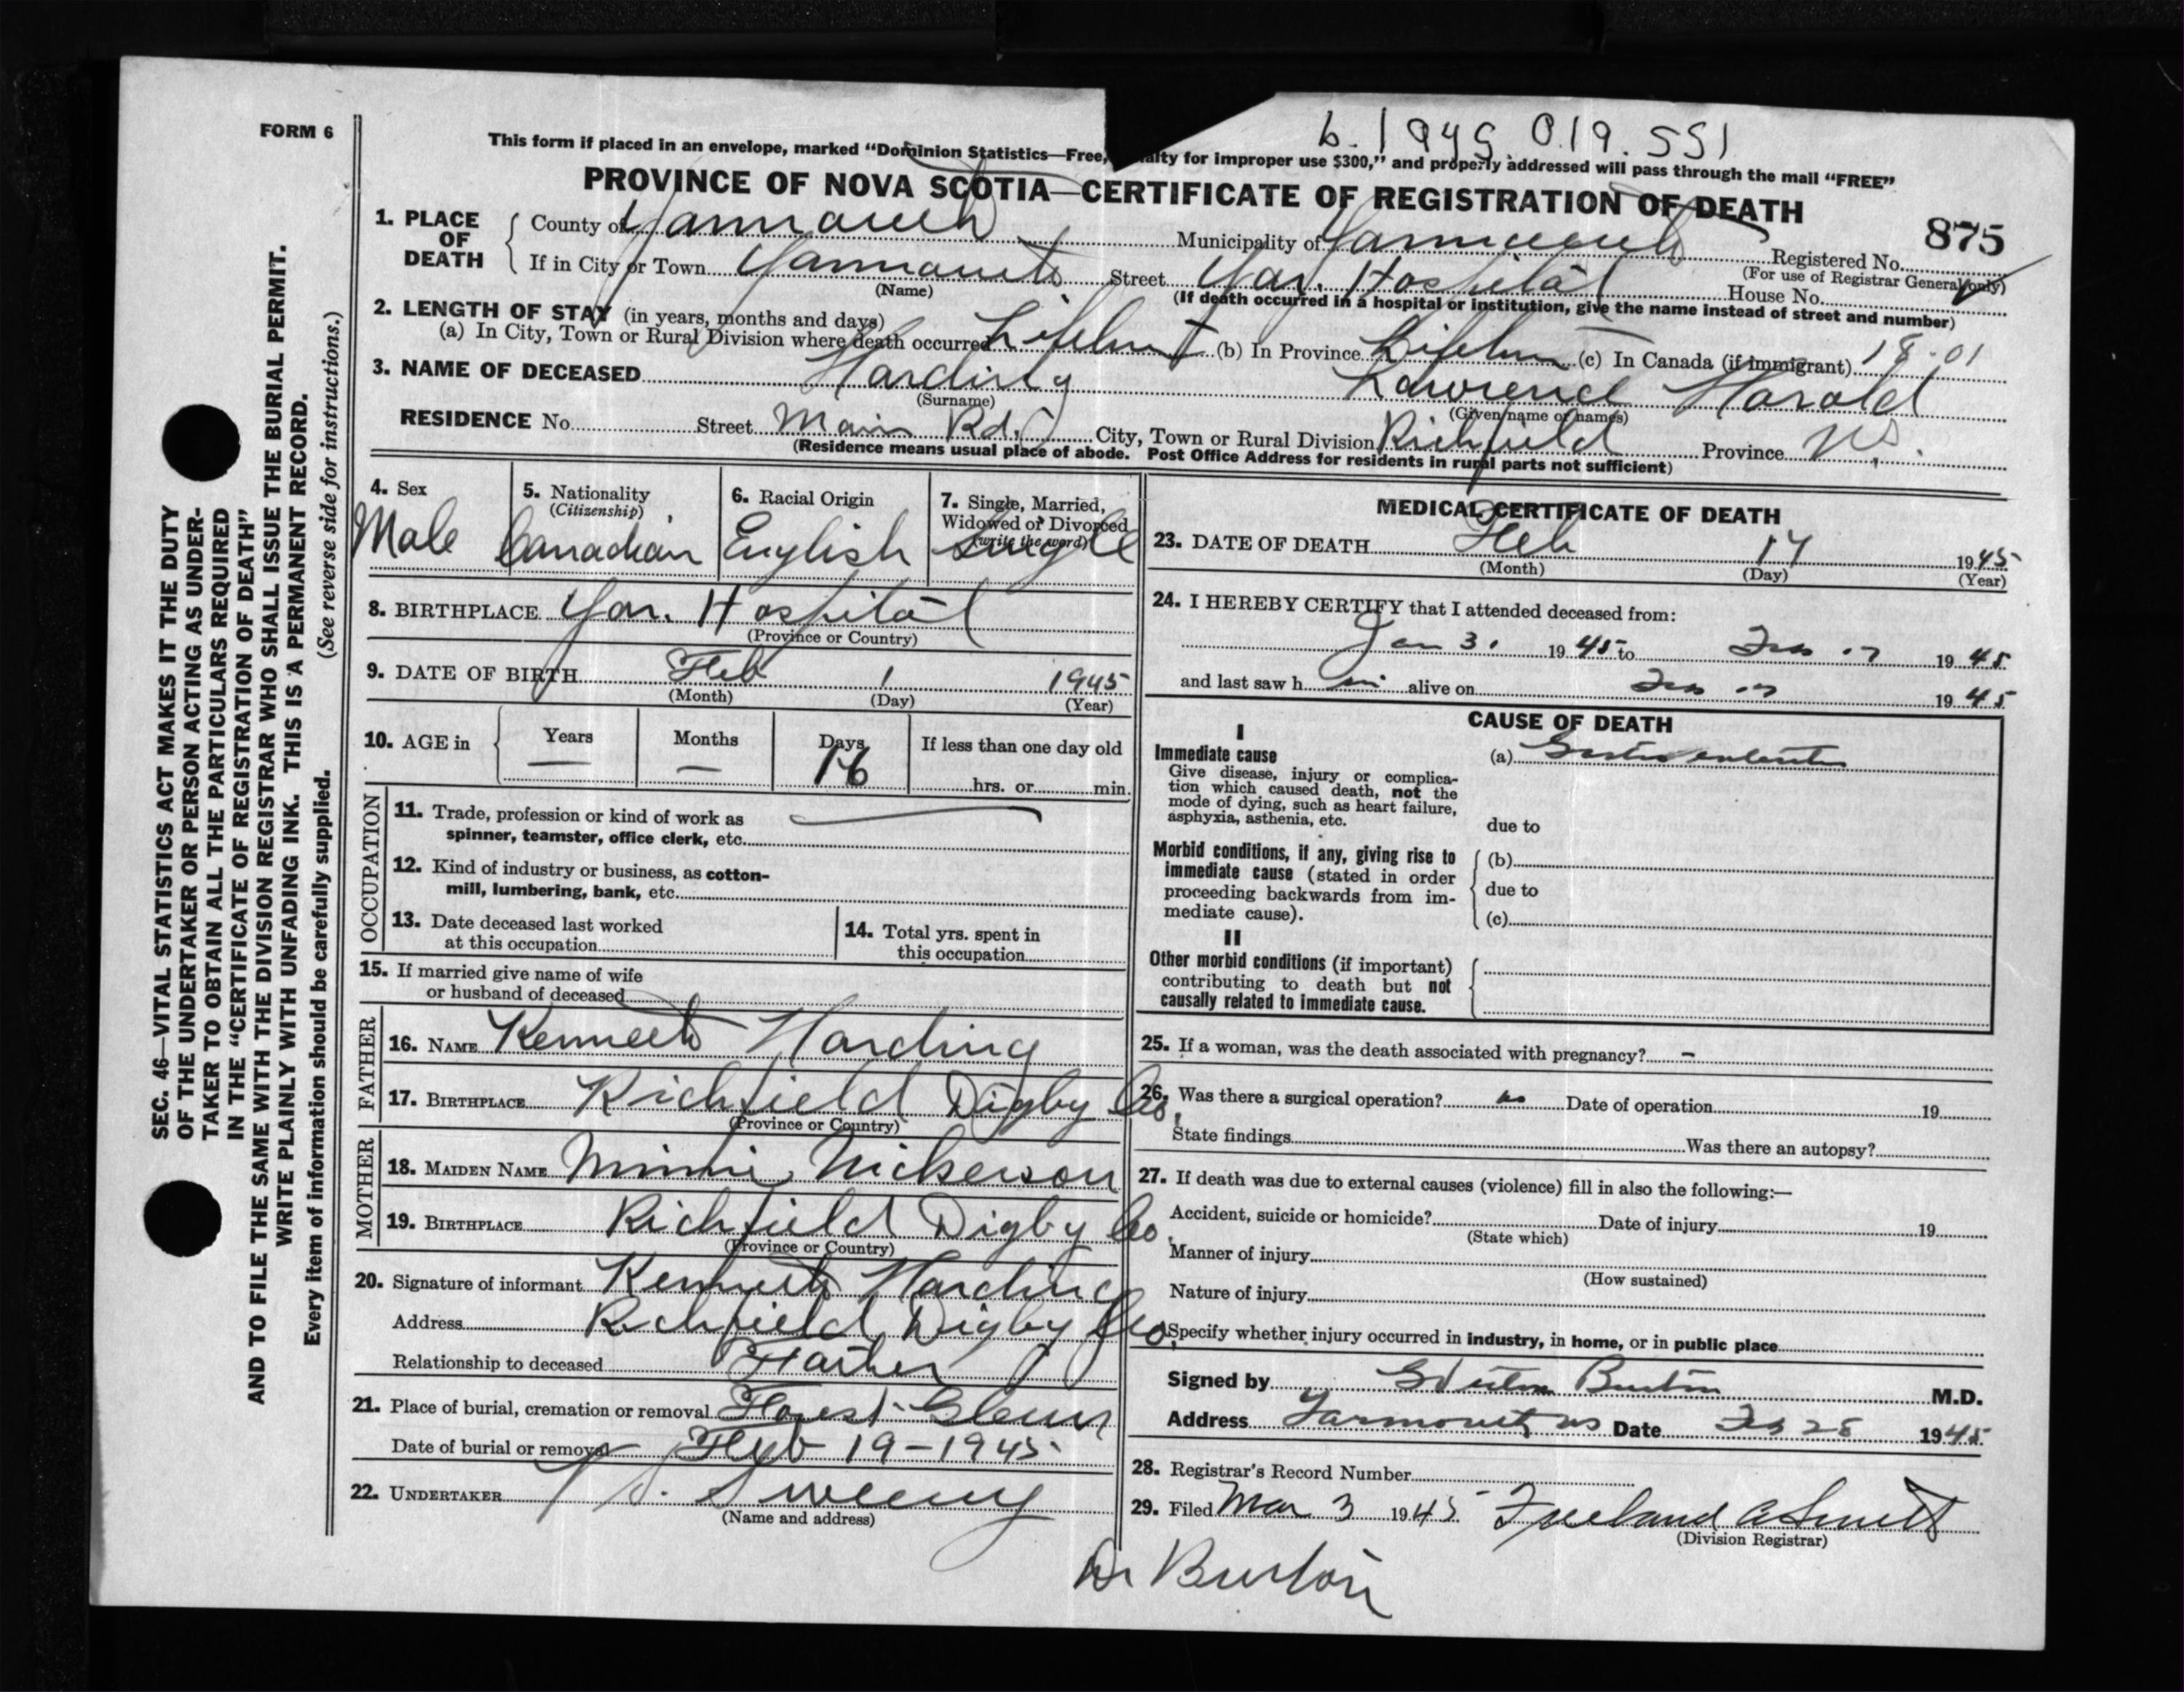 FORM 6
b. 1945 019.551
This form if placed in an envelope, marked “Dominion Statistics—Free, alty for improper use $300,” and properly addressed will pass through the mail “FREE”
PROVINCE OF NOVA SCOTIA—CERTIFICATE OF REGISTRATION OF DEATH
875
1. PLACE OF DEATH
County of Yarmouth Municipality of Yarmouth Registered No.
(For use of Registrar General only)
If in City or Town Yarmouth Street Yar. Hospital House No.
(Name) (If death occurred in a hospital or institution, give the name instead of street and number)
2. LENGTH OF STAY (in years, months and days)
(a) In City, Town or Rural Division where death occurred Lifetime (b) In Province Lifetime (c) In Canada (if immigrant) 18.01
3. NAME OF DECEASED Harding Lawrence Harold
(Surname) (Given name or names)
RESIDENCE No. Street Main Rd. City, Town or Rural Division Richfield Province NS.
(Residence means usual place of abode. Post Office Address for residents in rural parts not sufficient)
4. Sex
Male
5. Nationality
(Citizenship)
Canadian
6. Racial Origin
English
7. Single, Married, Widowed or Divorced
(write the word)
Single
8. BIRTHPLACE Yar. Hospital
(Province or Country)
9. DATE OF BIRTH Feb 1 1945
(Month) (Day) (Year)
10. AGE in Years — Months — Days 16 If less than one day old
hrs. or min.
OCCUPATION
11. Trade, profession or kind of work as
spinner, teamster, office clerk, etc.
12. Kind of industry or business, as cotton-
mill, lumbering, bank, etc.
13. Date deceased last worked
at this occupation
14. Total yrs. spent in
this occupation
15. If married give name of wife
or husband of deceased
FATHER
16. NAME Kenneth Harding
17. BIRTHPLACE Richfield Digby Co.
(Province or Country)
MOTHER
18. MAIDEN NAME Minnie Nickerson
19. BIRTHPLACE Richfield Digby Co.
(Province or Country)
20. Signature of informant Kenneth Harding
Address Richfield, Digby Co.
Relationship to deceased Father
21. Place of burial, cremation or removal Forest Glenn
Date of burial or removal Feb 19-1945
22. UNDERTAKER S. Sweeny
(Name and address)
MEDICAL CERTIFICATE OF DEATH
23. DATE OF DEATH Feb 17 1945
(Month) (Day) (Year)
24. I HEREBY CERTIFY that I attended deceased from:
Jan 31 1945 to Feb 17 1945
and last saw him alive on Feb 17 1945
CAUSE OF DEATH
I
Immediate cause
Give disease, injury or complica-
tion which caused death, not the
mode of dying, such as heart failure,
asphyxia, asthenia, etc.
(a) Gastro enteritis
due to
Morbid conditions, if any, giving rise to
immediate cause (stated in order
proceeding backwards from im-
mediate cause).
(b)
due to
(c)
II
Other morbid conditions (if important)
contributing to death but not
causally related to immediate cause.
25. If a woman, was the death associated with pregnancy? –
26. Was there a surgical operation? no Date of operation 19
State findings Was there an autopsy?
27. If death was due to external causes (violence) fill in also the following:—
Accident, suicide or homicide? Date of injury 19
(State which)
Manner of injury
(How sustained)
Nature of injury
Specify whether injury occurred in industry, in home, or in public place
Signed by Burton M.D.
Address Yarmouth NS Date Feb 28 1945
28. Registrar's Record Number
29. Filed Mar 3 1945 Freeland A Smith
(Division Registrar)
Dr Burton
SEC. 46—VITAL STATISTICS ACT MAKES IT THE DUTY
OF THE UNDERTAKER OR PERSON ACTING AS UNDER-
TAKER TO OBTAIN ALL THE PARTICULARS REQUIRED
IN THE “CERTIFICATE OF REGISTRATION OF DEATH”
AND TO FILE THE SAME WITH THE DIVISION REGISTRAR WHO SHALL ISSUE THE BURIAL PERMIT.
WRITE PLAINLY WITH UNFADING INK. THIS IS A PERMANENT RECORD.
Every item of information should be carefully supplied. (See reverse side for instructions.)